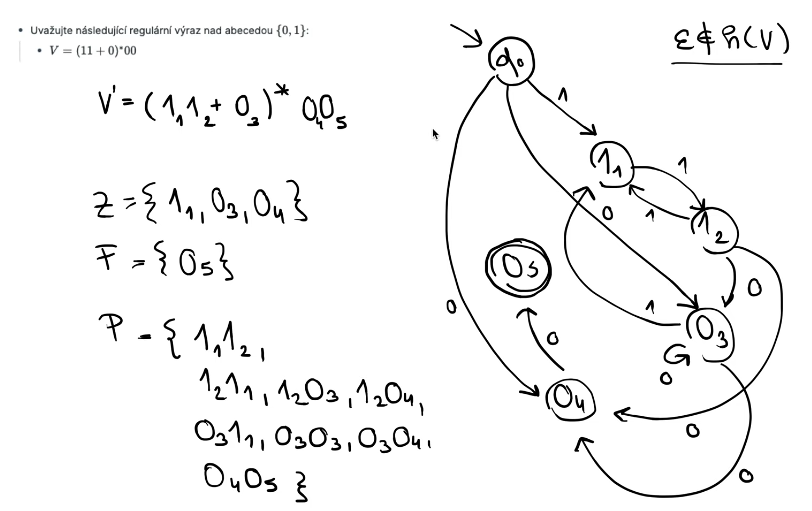 • Uvažujte následující regulární výraz nad abecedou {0, 1}:
• V = (11 + 0)*00
ε ∉ h(V)
V' = (1₁1₂ + 0₃)* 0₄0₅
Z = {1₁, 0₃, 0₄}
F = {0₅}
P = {1₁1₂,
1₂1₁, 1₂0₃, 1₂0₄,
0₃1₁, 0₃0₃, 0₃0₄,
0₄0₅}
q₀
1
1₁
1
1
1₂
0
0₅
0
0
1
0₃
0
0
0₄
0
0